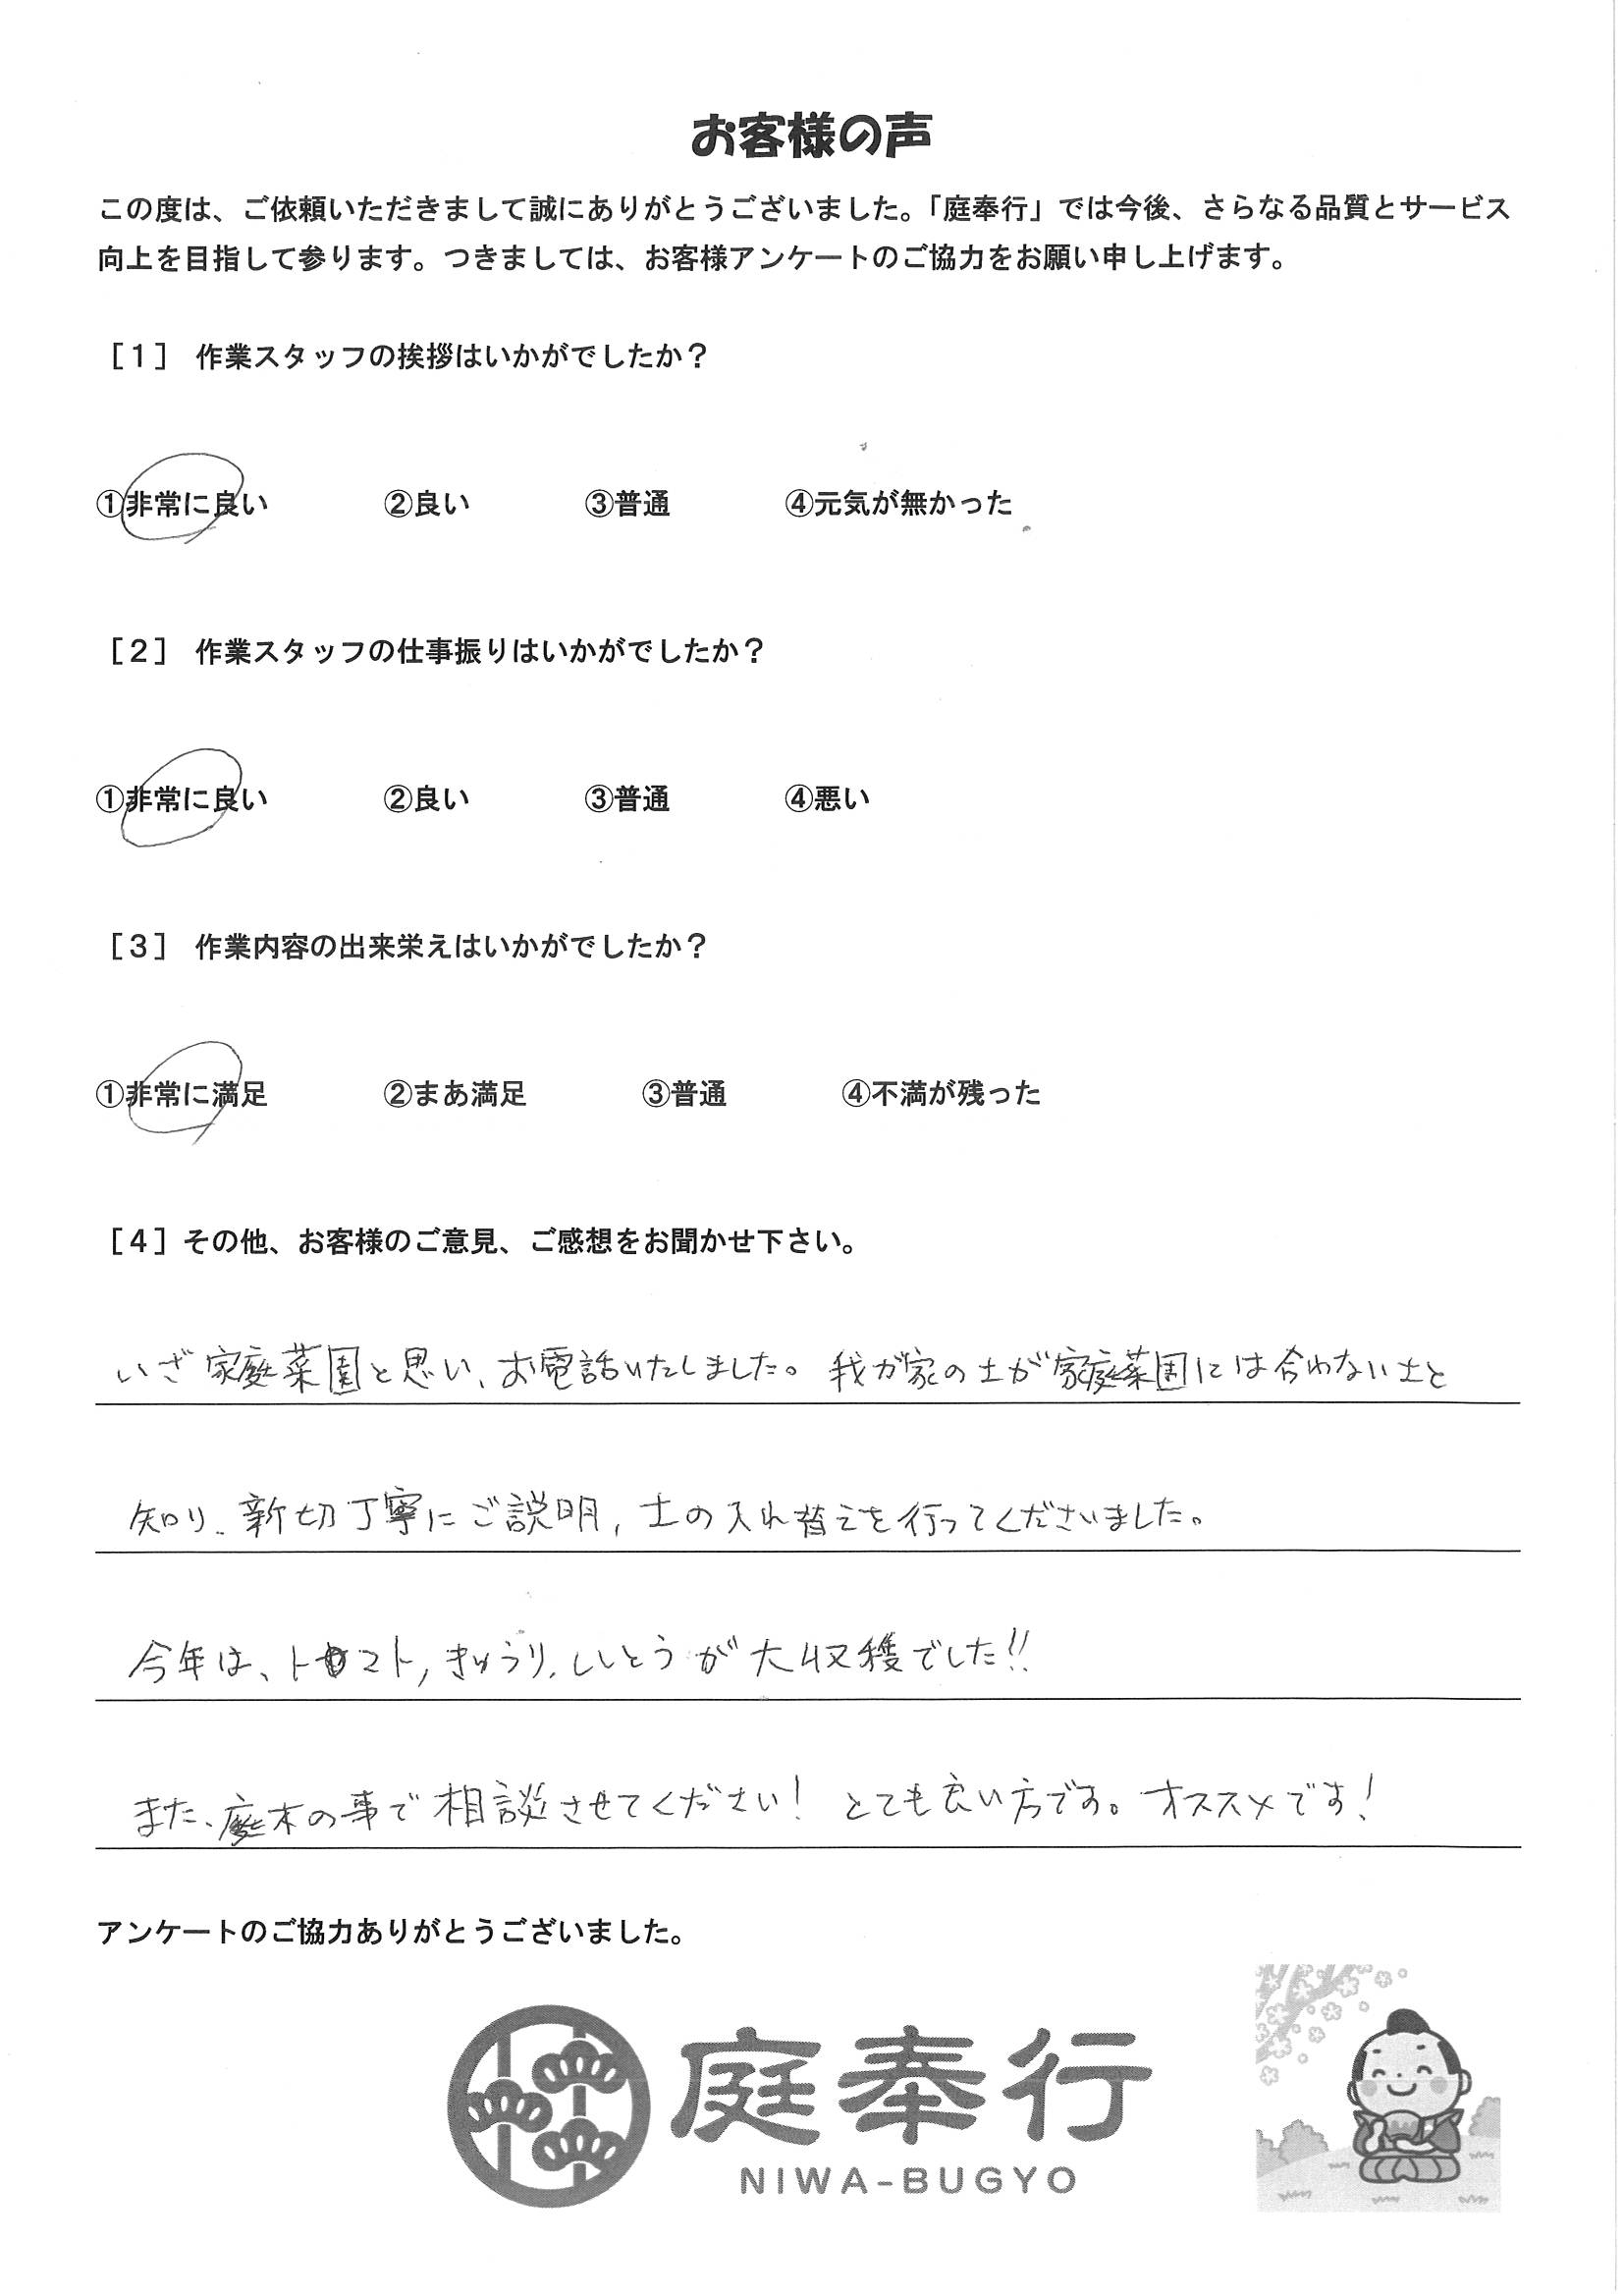 お客様の声
この度は、ご依頼いただきまして誠にありがとうございました。「庭奉行」では今後、さらなる品質とサービス
向上を目指して参ります。つきましては、お客様アンケートのご協力をお願い申し上げます。
［１］ 作業スタッフの挨拶はいかがでしたか？
①非常に良い ②良い ③普通 ④元気が無かった
［２］ 作業スタッフの仕事振りはいかがでしたか？
①非常に良い ②良い ③普通 ④悪い
［３］ 作業内容の出来栄えはいかがでしたか？
①非常に満足 ②まあ満足 ③普通 ④不満が残った
［４］その他、お客様のご意見、ご感想をお聞かせ下さい。
いざ家庭菜園と思い、お電話いたしました。我が家の土が家庭菜園には合わない土と
知り、新切丁寧にご説明，土の入れ替えを行ってくださいました。
今年は、トマト，きゅうり，ししとうが大収穫でした!!
また、庭木の事で相談させてください！とても良い方です。オススメです！
アンケートのご協力ありがとうございました。
庭奉行
NIWA-BUGYO